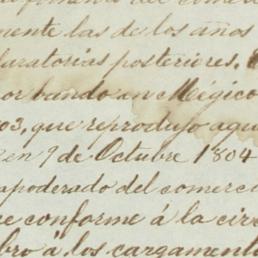 mente las de los años
laratorias posteriores,
or bando en Mégico
03, que reprodujo aqu
en 9 de Octubre 1804
apoderado del comerc
e conforme á la circ
bro á los cargamento